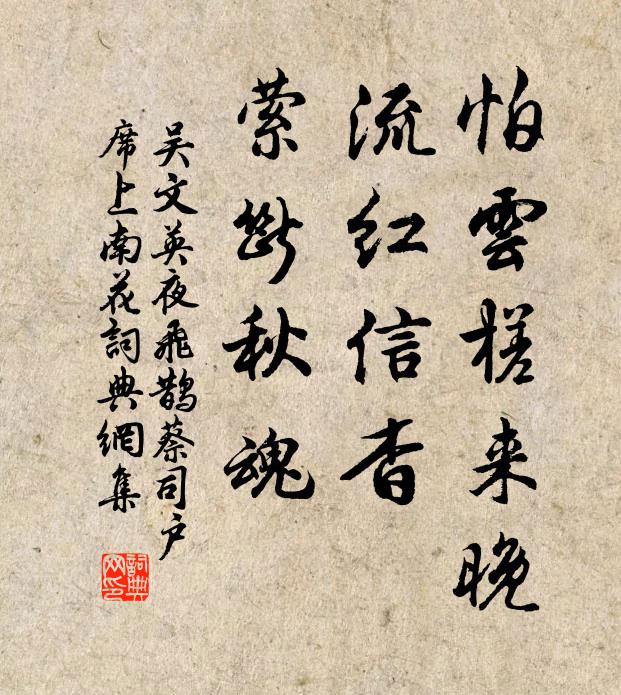 怕雲槎来晚
流红信杳
縈斷秋魂
吴文英夜飛鵲蔡司户
席上南花詞典網集
詞典
网印